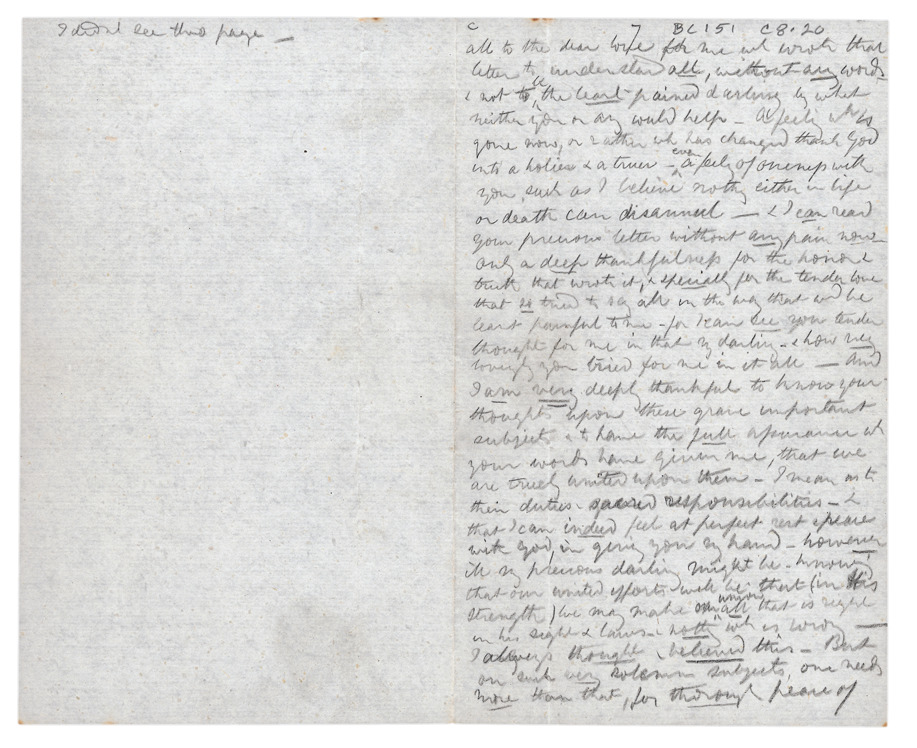 I didn't see this page —
c 7 BC151 C8.20
all to the dear love for me wh wrote that
letter to understand all, without any words
& not to be the least pained darling by what
neither you or any would help — A feeling wh is
gone now, or rather wh has changed thank God
into a holier & a truer — even a feelg of oneness with
you, such as I believe nothg either in life
or death can disannul — & I can read
your precious letter without any pain now —
only a deep thankfulness for the honor &
truth that wrote it, & specially for the tender love
that so tried to say all in the way that wd be
least painful to me — for I can see your tender
thought for me in that my darling — & how very
lovingly you tried for me in it all — And
I am very deeply thankful to know your
thoughts upon these grave important
subjects & to have the full assurance wh
your words have given me, that we
are truly united upon them — I mean as to
their duties & sacred responsibilities — &
that I can indeed feel at perfect rest & peace
with God, in giving you my hand — however
ill my precious darling might be — knowing
that our united efforts will be that (in His
strength) we may make our union all that is right
in his sight & laws & nothg wh is wrong —
I always thought & believed this — But
on such very solemn subjects, one needs
more than that, for thorough peace of